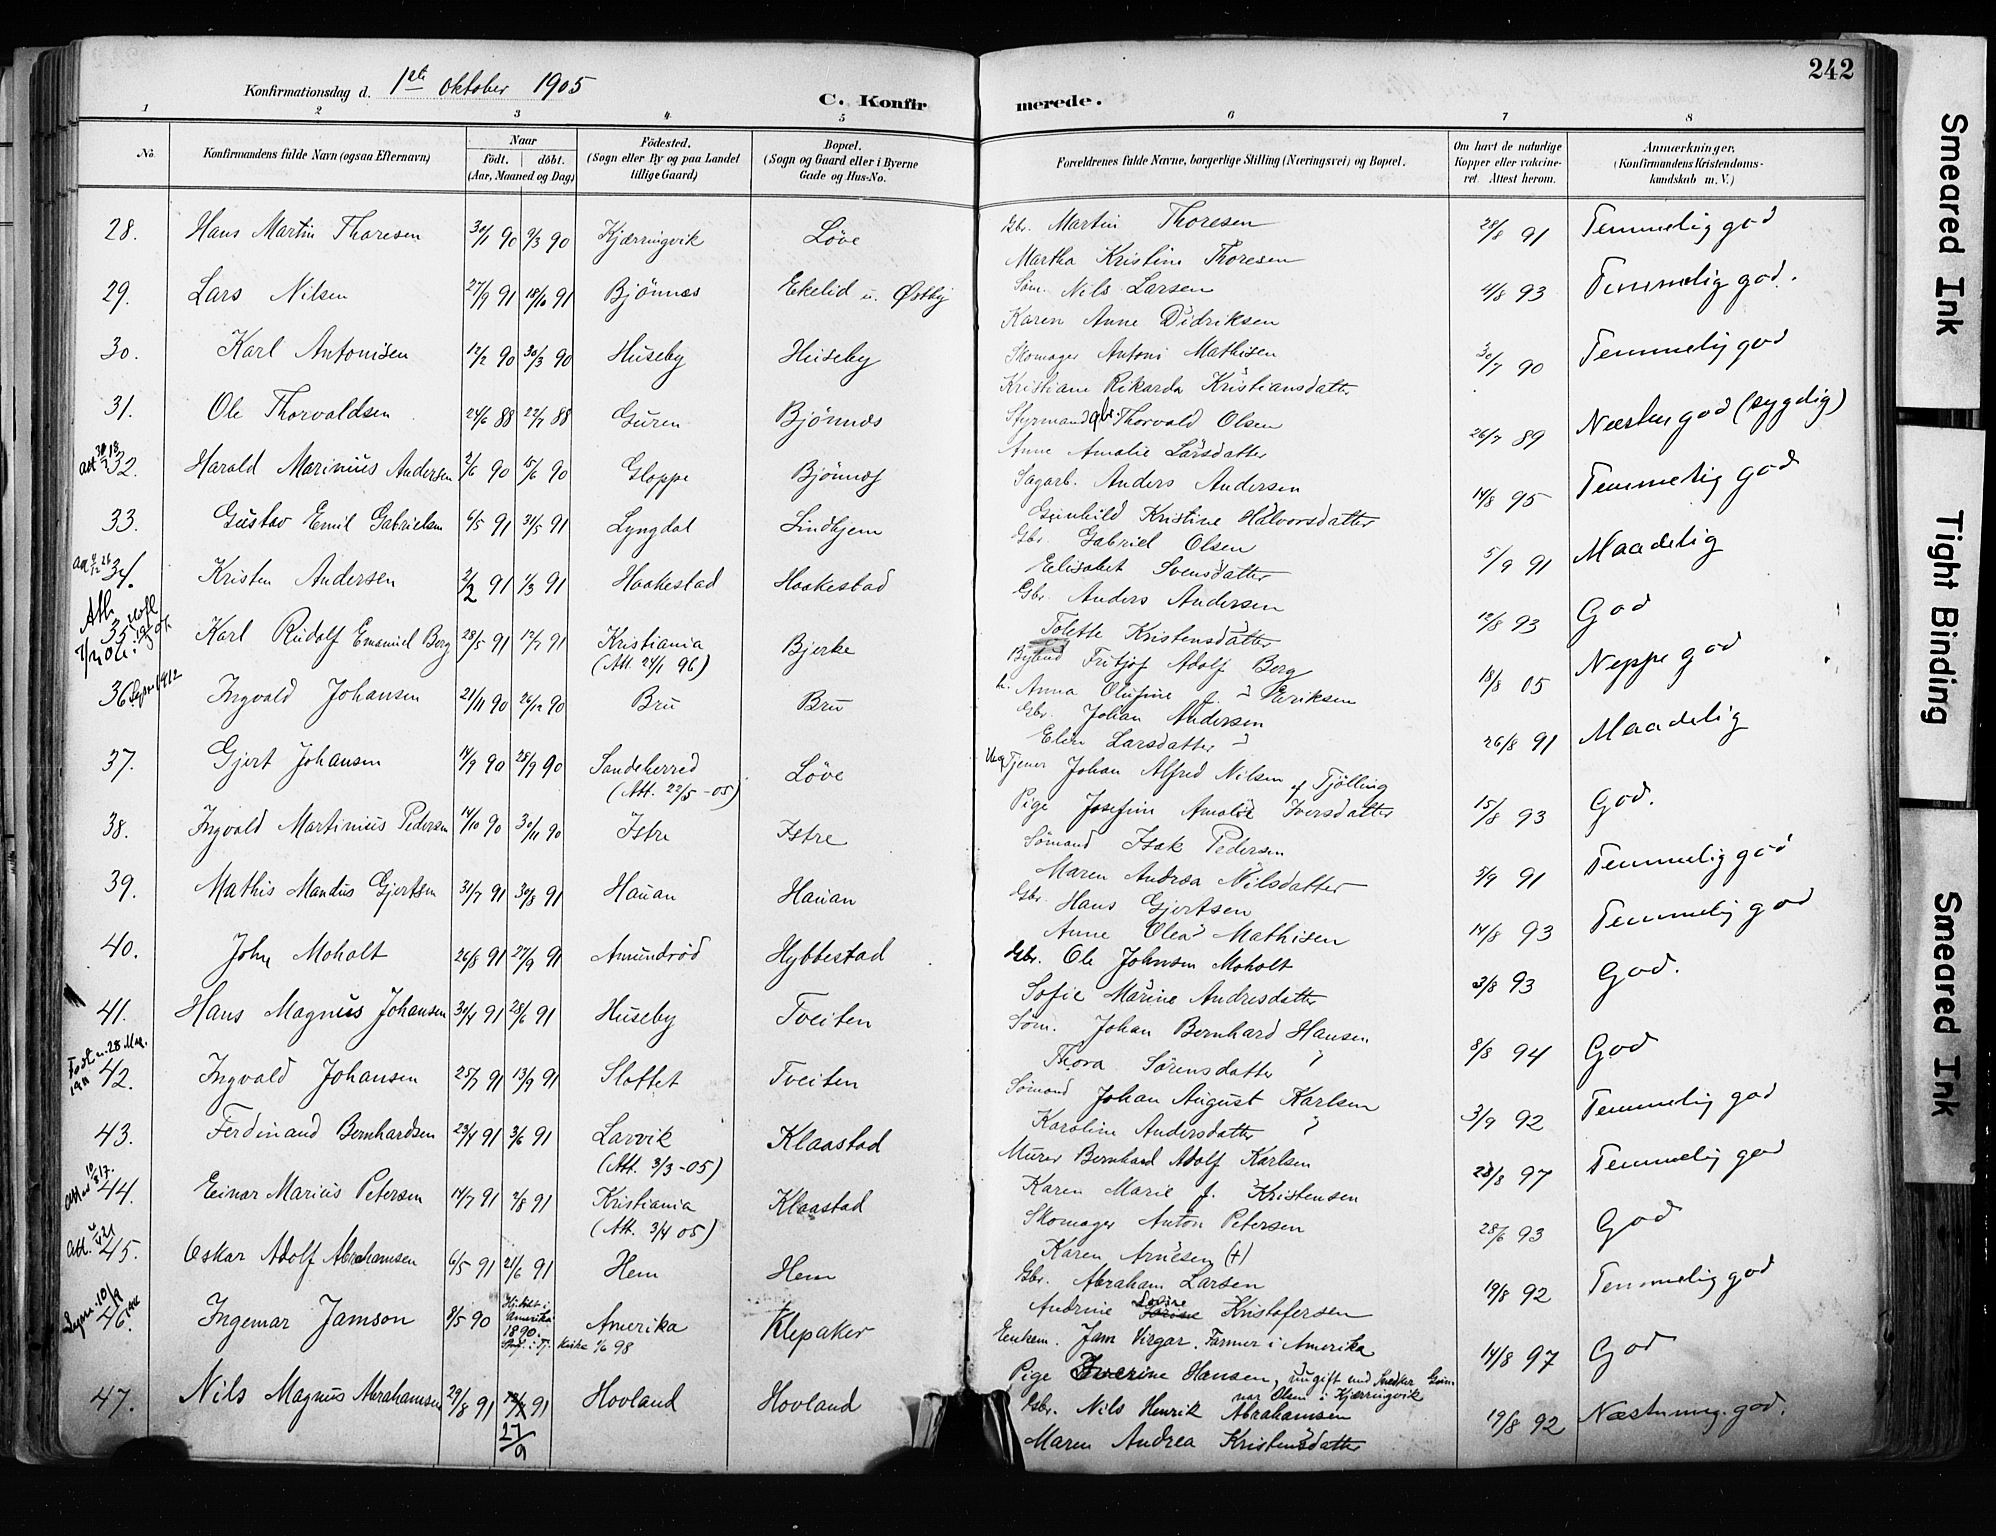 242
Konfirmationsdag d. 1ste Oktober 1905
C. Konfirmerede.
1 2 3 4 5 6 7 8
No. Konfirmandens fulde Navn (ogsaa Efternavn) Naar født. døbt. (Aar, Maaned og Dag) Fødested. (Sogn eller By og paa Landet tillige Gaard) Bopæl. (Sogn og Gaard eller i Byerne Gade og Hus-No. Forældrenes fulde Navne, borgerlige Stilling (Næringsvei) og Bopæl. Om havt de naturlige Kopper eller vaccineret. Attest herom. Anmærkninger, (Konfirmandens Kristendomskundskab m. V.)
28. Hans Martin Thoresen 30/1 90 9/3 90 Kjærringvik Löve Gbr. Martin Thoresen 28/8 91 Temmelig god
Martha Kristine Thoresen
29. Lars Nilsen 27/9 91 18/10 91 Bjönnes Ekelid u. Østby Söm. Nils Larsen 4/8 93 Temmelig god.
Karen Anne Didriksen
30. Karl Antonisen 12/2 90 30/3 90 Huseby Huseby Skomager Antoni Mathisen 30/7 90 Temmelig god
Kristiane Rikarda Kristiansdatter
31. Ole Thorvaldsen 24/6 88 22/7 88 Guren Bjönnes Styrmand gbr. Thorvald Olsen 26/7 89 Næsten god (sygelig)
Anne Amalie Larsdatter
32. Harald Marinius Andersen 2/6 90 15/6 90 Gloppe Bjönnes Sagarb. Anders Andersen 14/8 95 Temmelig god
Gunhild Kristine Halvorsdatter
33. Gustav Emil Gabrielsen 6/5 91 31/5 91 Lyngdal Lindhjem Gbr. Gabriel Olsen 5/9 91 Maadelig
Elisabet Svensdatter
34. Kristen Andersen 2/2 91 1/3 91 Haakestad Haakestad Gbr. Anders Andersen 12/8 93 God
Tolette Kristensdatter
35. Karl Rudolf Emanuel Berg 28/5 91 12/7 91 Kristiania Bjerke Bybud Fritjof Adolf Berg 18/8 05 Neppe god
(Att 24/1 96)
h. Anna Olufine f. Eeriksen
36. Ingvald Johansen 21/11 90 26/12 90 Bru Bru Gbr. Johan Andersen 26/8 91 Maadelig
Elen Larsdatter
37. Gjert Johansen 14/9 90 28/9 90 Sandeherred Löve Ug. Tjener Johan Alfred Nilsen af Tjölling 15/8 93 God.
(Att. 22/5 - 05)
Pige Josefine Amalie Iversdatter
38. Ingvald Martinius Pedersen 14/10 90 30/11 90 Istre Istre Sömand Isak Pedersen 3/9 91 Temmelig god
Maren Andrea Nilsdatter
39. Mathis Mandus Gjertsen 31/7 91 30/8 91 Hauan Hauan Gbr. Hans Gjertsen 14/8 93 Temmelig god
Anne Olea Mathisen
40. John Moholt 26/8 91 27/9 91 Amundröd Hybbestad Gbr. Ole Johnsen Moholt 3/8 93 God.
Sofie Marine Andresdatter
41. Hans Magnus Johansen 30/4 91 28/6 91 Huseby Tveiten Söm. Johan Bernhard Hansen 8/8 94 God
Thora Sörensdatter
42. Ingvald Johansen 25/7 91 13/9 91 Slottet Tveiten Sömand Johan August Karlsen 3/9 92 Temmelig god
Karoline Andersdatter
43. Ferdinand Bernhardsen 23/4 91 3/6 91 Larvik Klaastad Murer Bernhard Adolf Karlsen 28/8 97 Temmelig god
(Att. 3/3 - 05)
Karen Marie f. Kristensen
44. Einar Marius Petersen 14/7 91 2/8 91 Kristiania Klaastad Skomager Anton Petersen 28/6 93 God
(Att. 3/4 05)
Karen Arnesen (+)
45. Oskar Adolf Abrahamsen 6/5 91 21/6 91 Hem Hem Gbr. Abraham Larsen 19/8 92 Temmelig god
Andrine Lovise Kristofersen
46. Ingemar Jamson 8/5 90 Hj.döbt i Amerika 1890. Amerika Klepaker Eenhem. Jam Virgar. Farmer i Amerika 14/8 97 God
Kirke 1/6 98
Pige Iverine Hansen, nu gift med Snedker Gunnar Olsen i Kjærringvik
47. Nils Magnus Abrahamsen 29/8 91 91 27/9 Hovland Hovland Gbr. Nils Henrik Abrahamsen 19/8 92 Næsten meg. god.
Maren Andrea Kristensdatter
Smeared Ink
Tight Binding
Smeared Ink